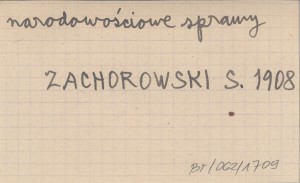 narodowościowe sprawy
ZACHOROWSKI S. 1908
BT/062/1709